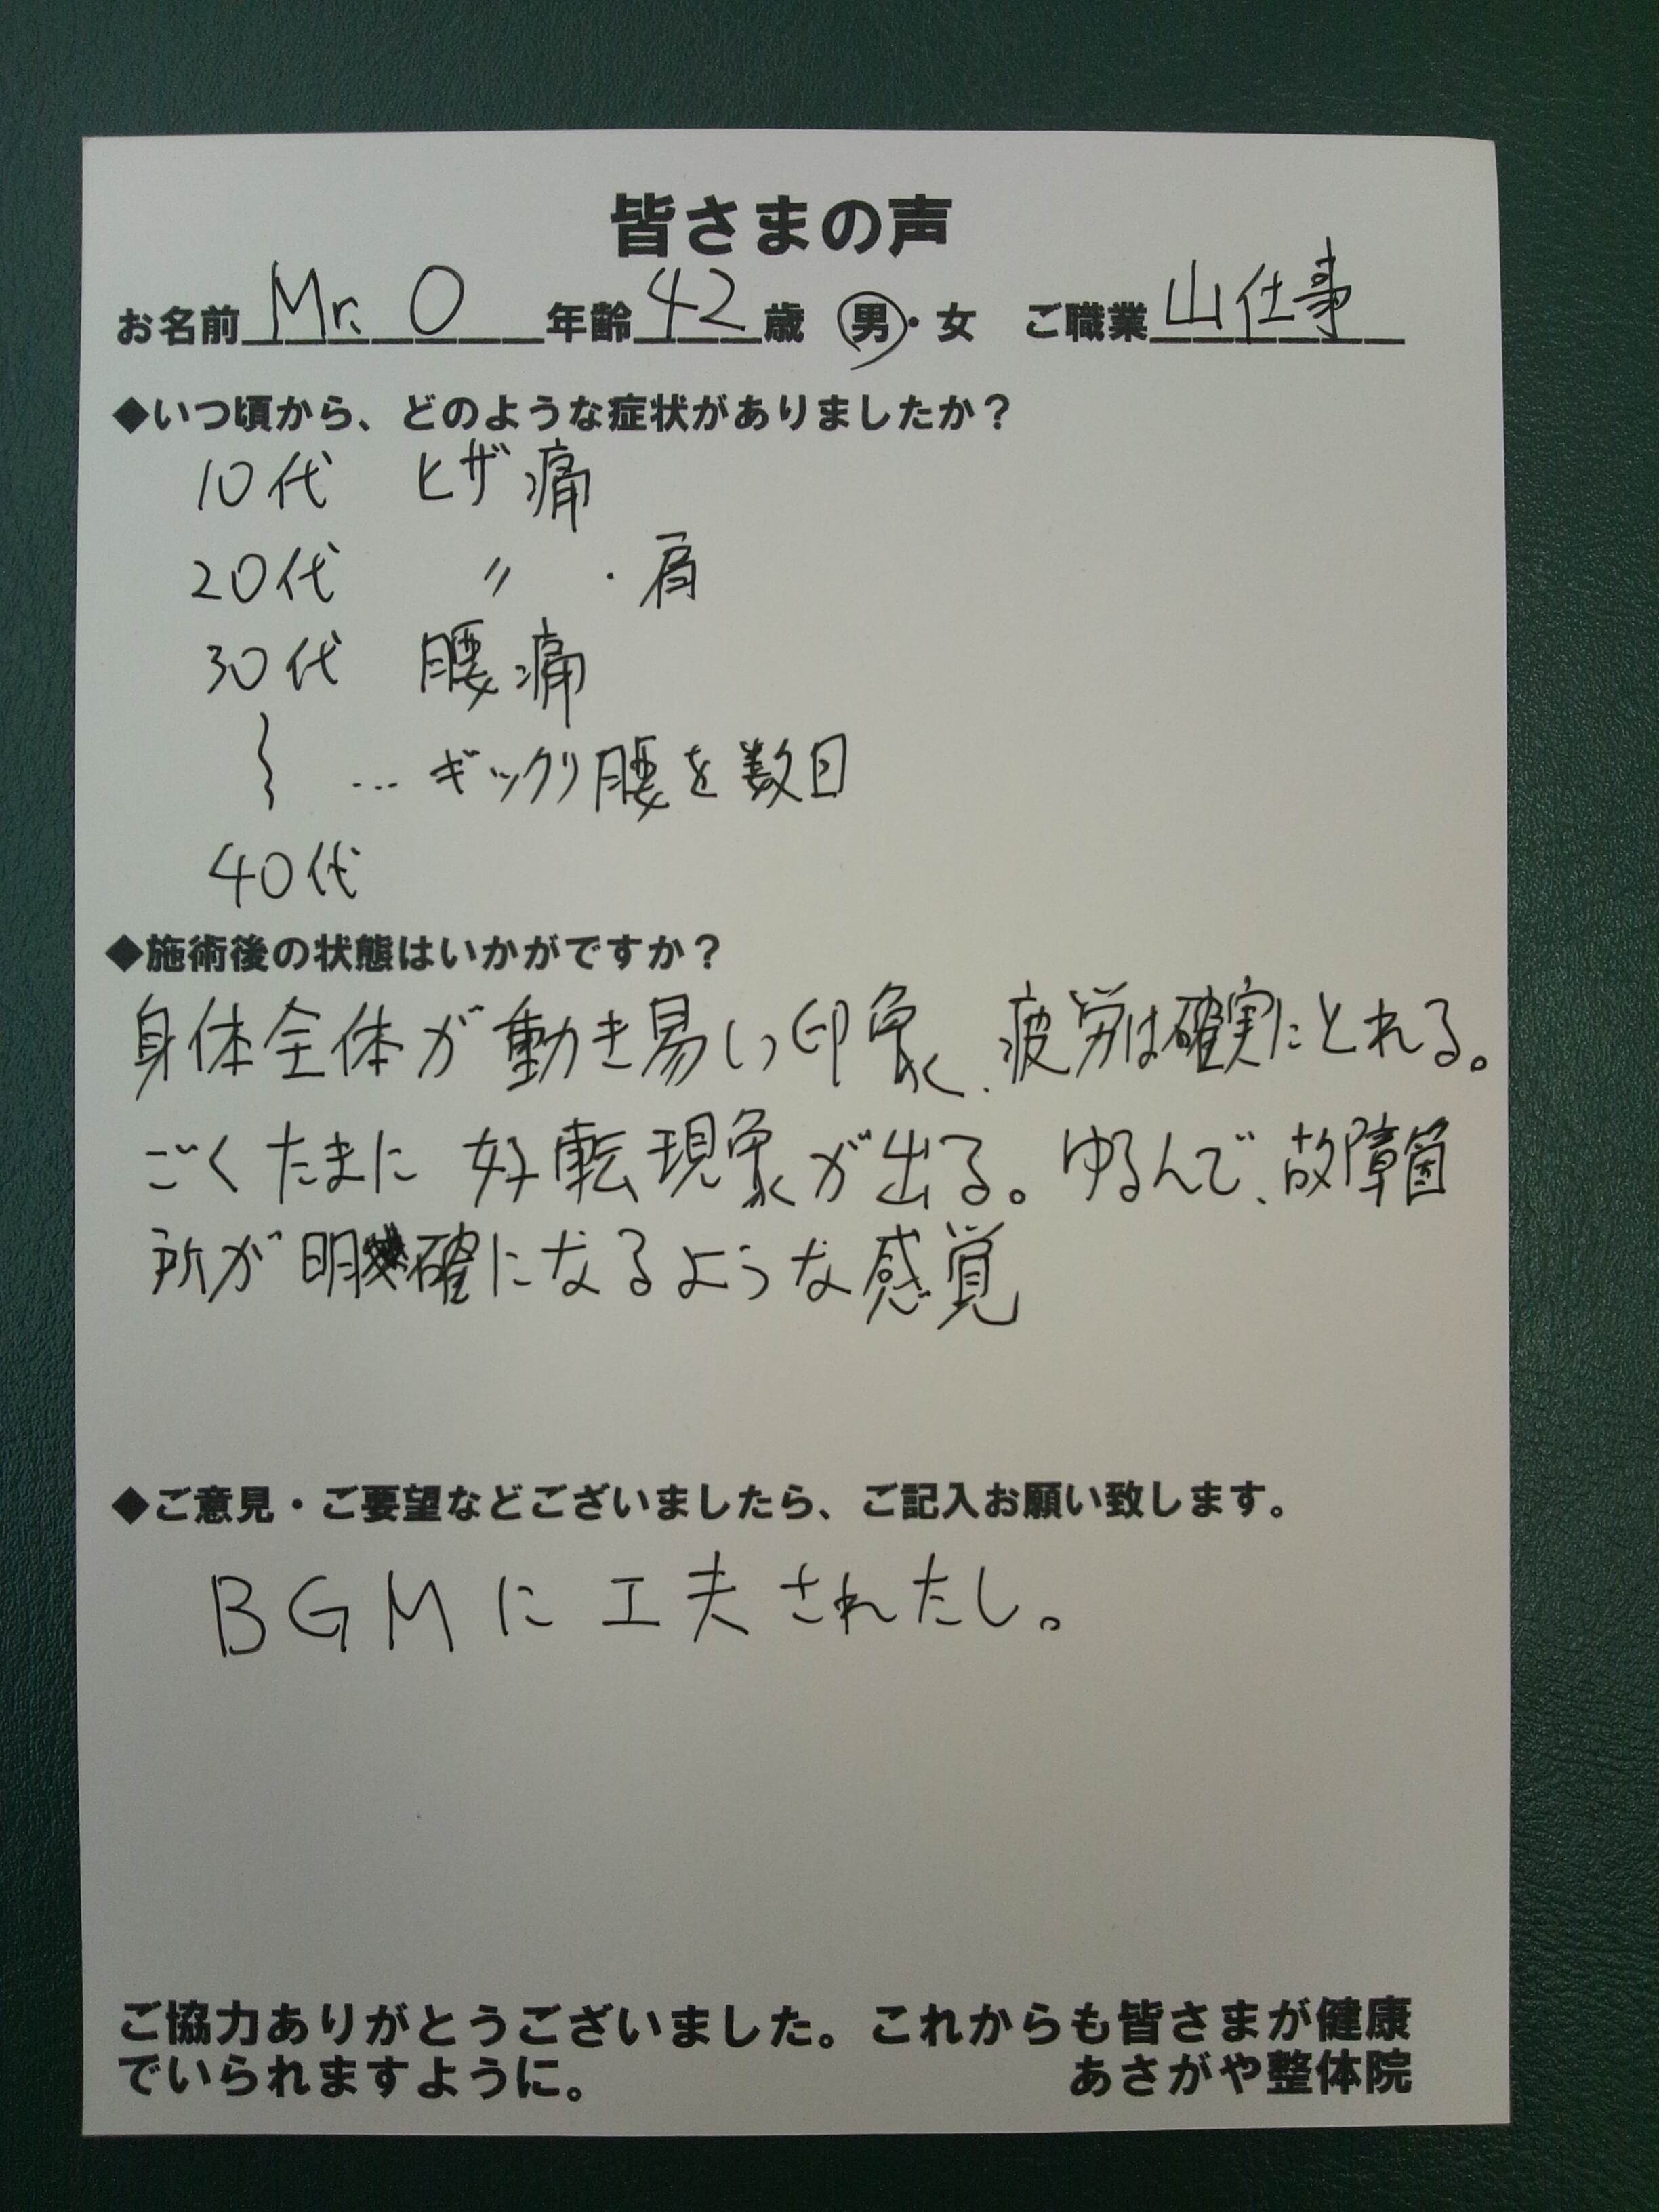 皆さまの声
お名前 Mr. O 年齢 42 歳 男・女 ご職業 山仕事
◆いつ頃から、どのような症状がありましたか？
10代 ヒザ痛
20代 〃 ・肩
30代 腰痛
〜 … ギックリ腰を数回
40代
◆施術後の状態はいかがですか？
身体全体が動き易い印象、疲労は確実にとれる。
ごくたまに好転現象が出る。ゆるんで、故障箇
所が明確になるような感覚
◆ご意見・ご要望などございましたら、ご記入お願い致します。
BGMに工夫されたし。
ご協力ありがとうございました。これからも皆さまが健康
でいられますように。 あさがや整体院